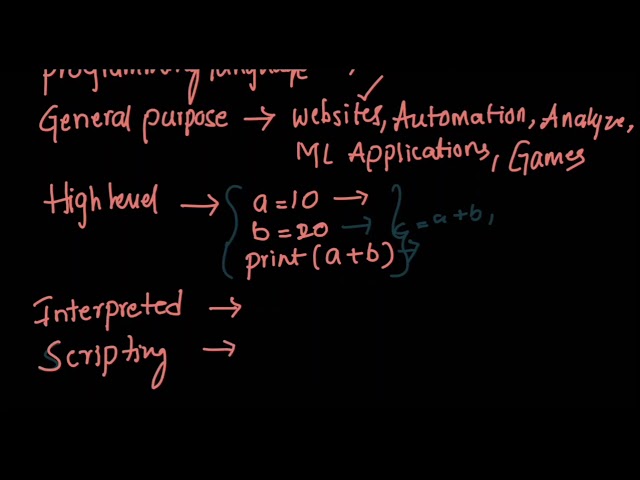 programming language
General purpose → websites, Automation, Analyze,
ML Applications, Games
High level → a=10 →
b=20 → c = a+b,
print(a+b) →
Interpreted →
Scripting →